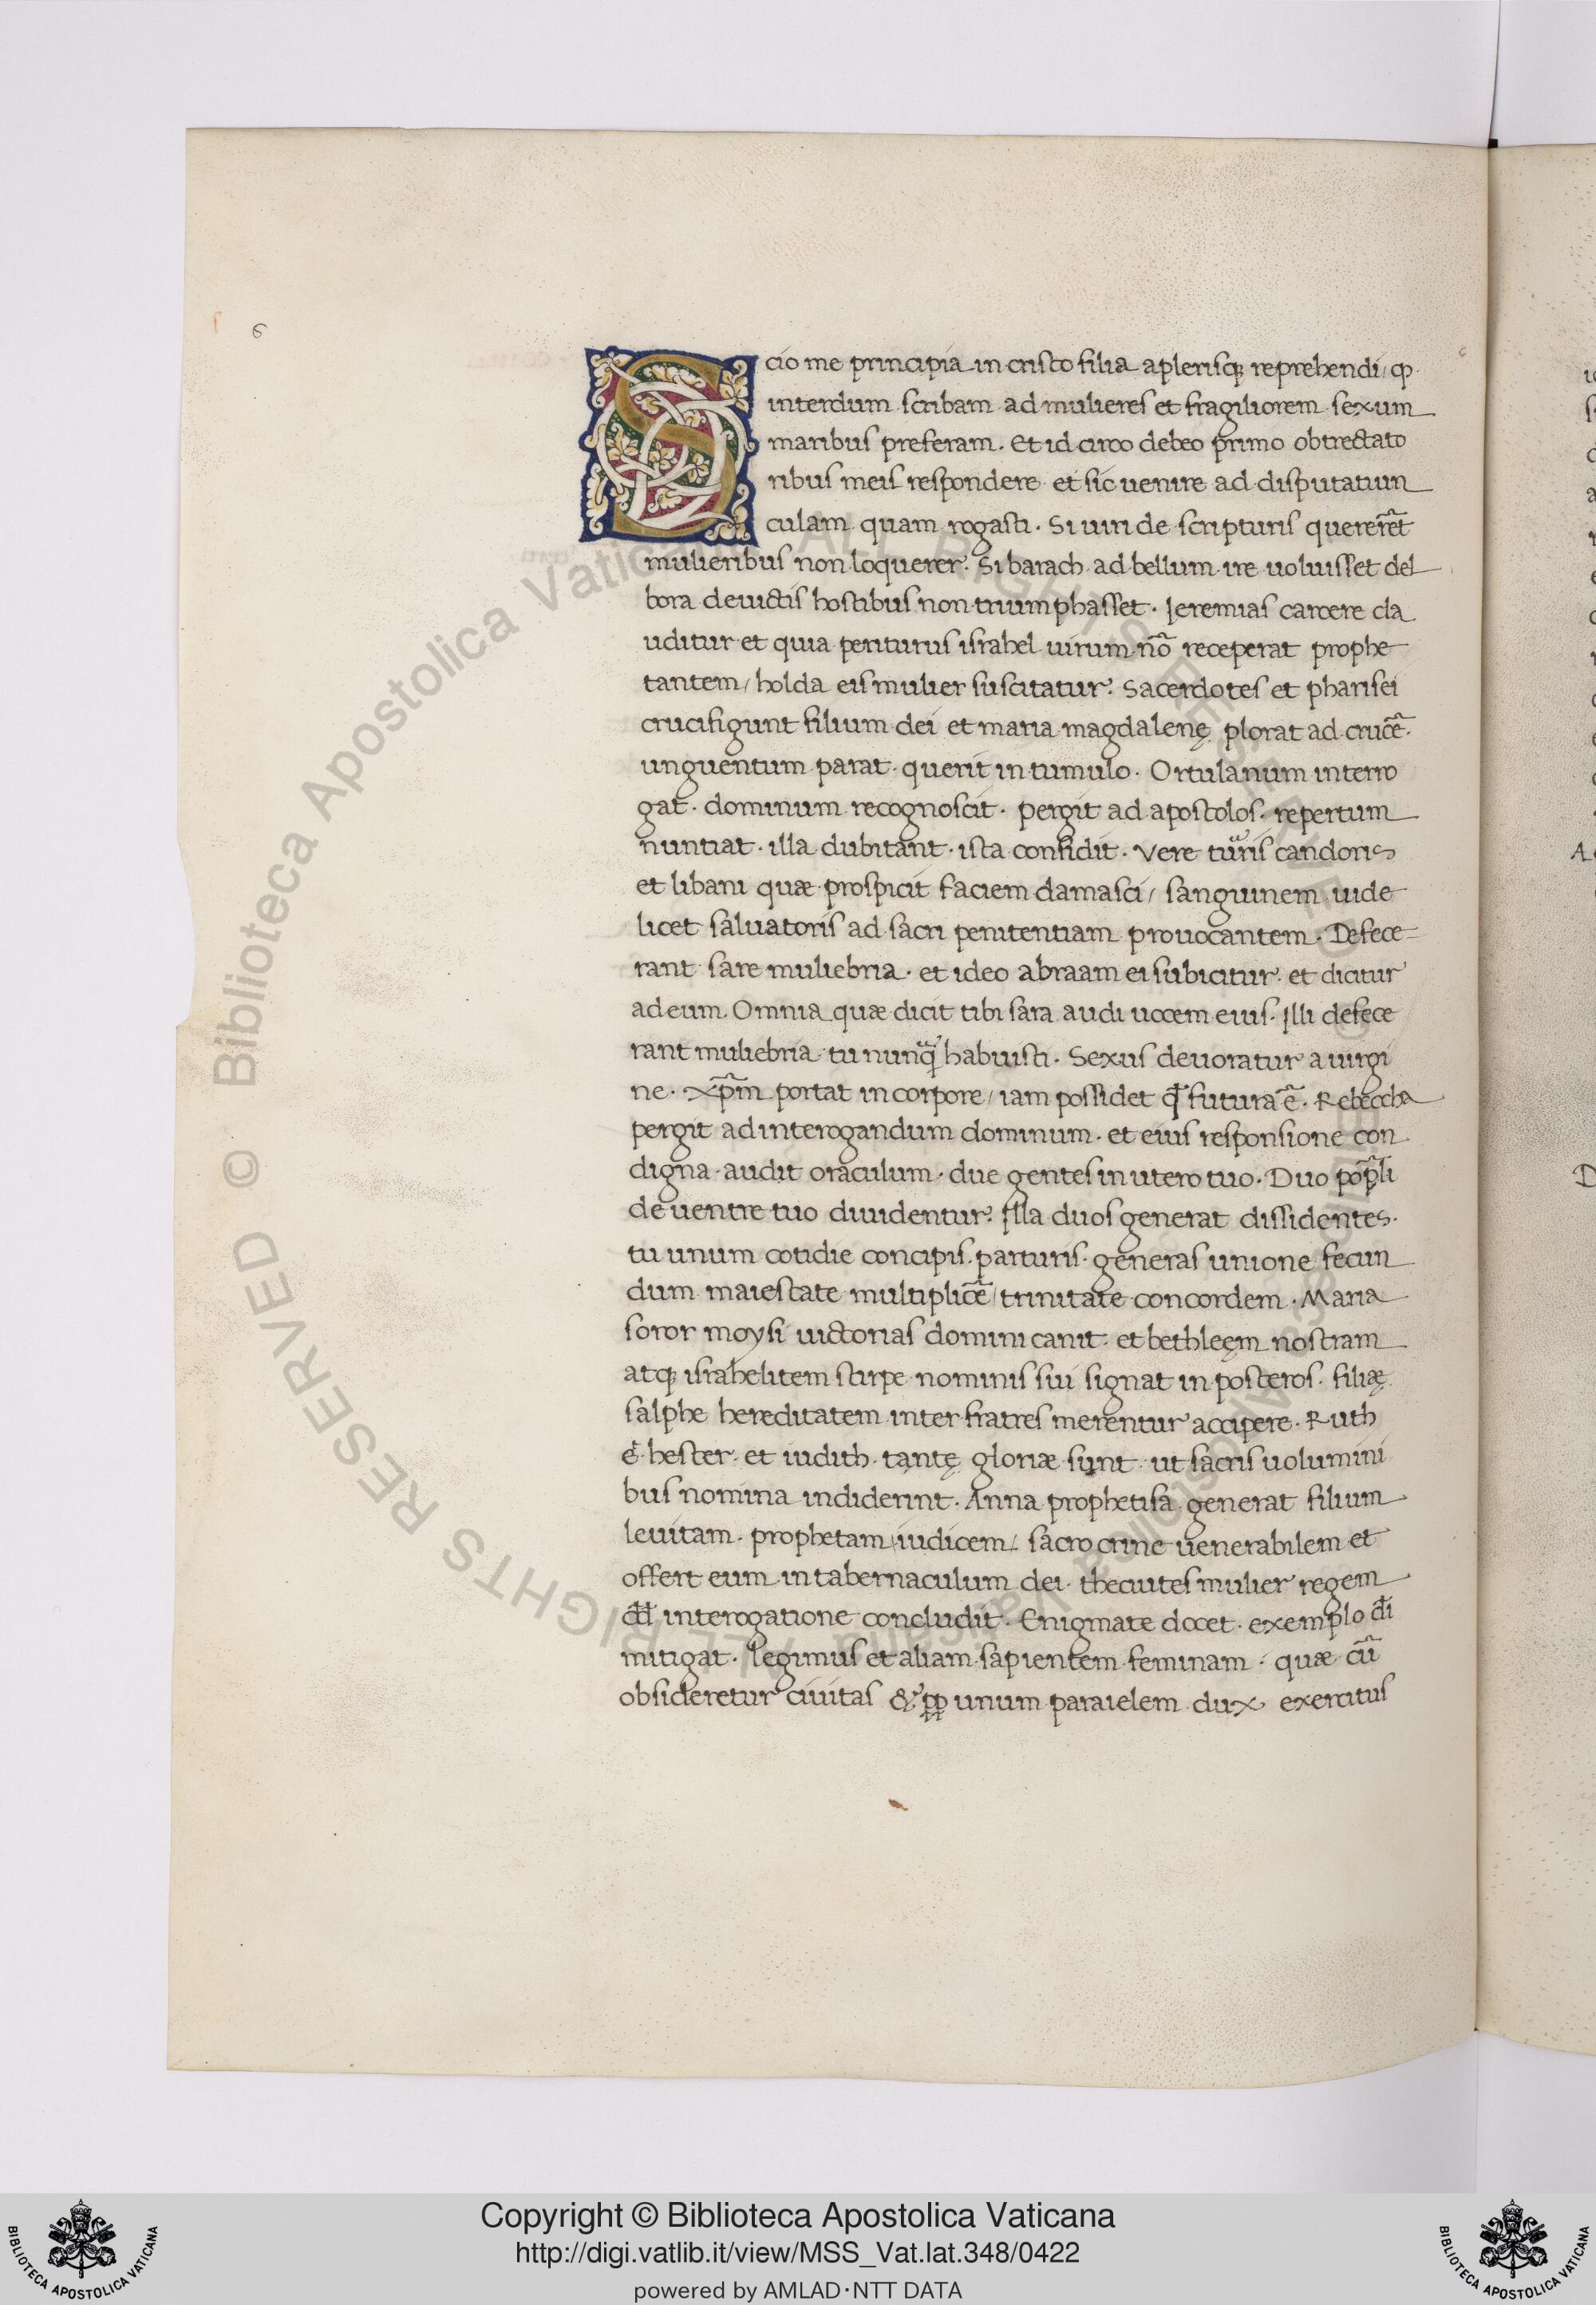 6
Scio me principia in cristo filia a plerisqꝫ reprehendi, ꝙ
interdum scribam ad mulieres et fragiliorem sexum
maribus preferam. Et id circo debeo primo obtrectato
ribus meis respondere et sic uenire ad disputatiun
culam quam rogasti. Si uiri de scripturis quererẽt
mulieribus non loquerer. Si barach ad bellum ire uoluisset del
bora deuictis hostibus non triumphasset. Ieremias carcere cla
uditur et quia periturus israhel uirum nõ receperat prophe
tantem, holda eis mulier suscitatur. Sacerdotes et pharisei
crucifigunt filium dei et maria magdalenę plorat ad crucẽ.
unguentum parat. querit in tumulo. Ortulanum interro
gat. dominum recognoscit. pergit ad apostolos. repertum
nuntiat. illa dubitant. ista confidit. Vere turris candoris
et libani quæ prospicit faciem damasci, sanguinem uide
licet saluatoris ad sacri penitentiam prouocantem. Defece
rant sare muliebria. et ideo abraam ei subicitur. et dicitur
ad eum. Omnia quæ dicit tibi sara audi uocem eius. Illi defece
rant muliebria tu nunq̃ habuisti. Sexus deuoratur a uirgi
ne. xp̃m portat in corpore, iam possidet qđ futura ẽ. Rebeccha
pergit ad interogandum dominum. et eius responsione con
digna audit oraculum. due gentes in utero tuo. Duo pop̃li
de uentre tuo diuidentur. Illa duos generat dissidentes.
tu unum cotidie concipis. parturis. generas unione fecun
dum maiestate multiplicẽ, trinitate concordem. Maria
soror moysi uictorias domini canit. et bethleęm nostram
atqꝫ israhelitem stirpe nominis sui signat in posteros. filiæ
salphe hereditatem inter fratres merentur accipere. Ruth
& hester. et iudith. tantę gloriæ sunt. ut sacris uolumini
bus nomina indiderint. Anna prophetisa generat filium
leuitam. prophetam, iudicem, sacro crine uenerabilem et
offert eum in tabernaculum dei. thecuites mulier regem
dđ interogatione concludit. Enigmate docet. exemplo di
mitigat. Legimus et aliam sapientem feminam. quæ cũ
obsideretur ciuitas & ꝓp unum paraielem dux exercitus
Copyright © Biblioteca Apostolica Vaticana
http://digi.vatlib.it/view/MSS_Vat.lat.348/0422
powered by AMLAD·NTT DATA
BIBLIOTECA APOSTOLICA VATICANA
BIBLIOTECA APOSTOLICA VATICANA
© Biblioteca Apostolica Vaticana ALL RIGHTS RESERVED © Biblioteca Apostolica Vaticana ALL RIGHTS RESERVED